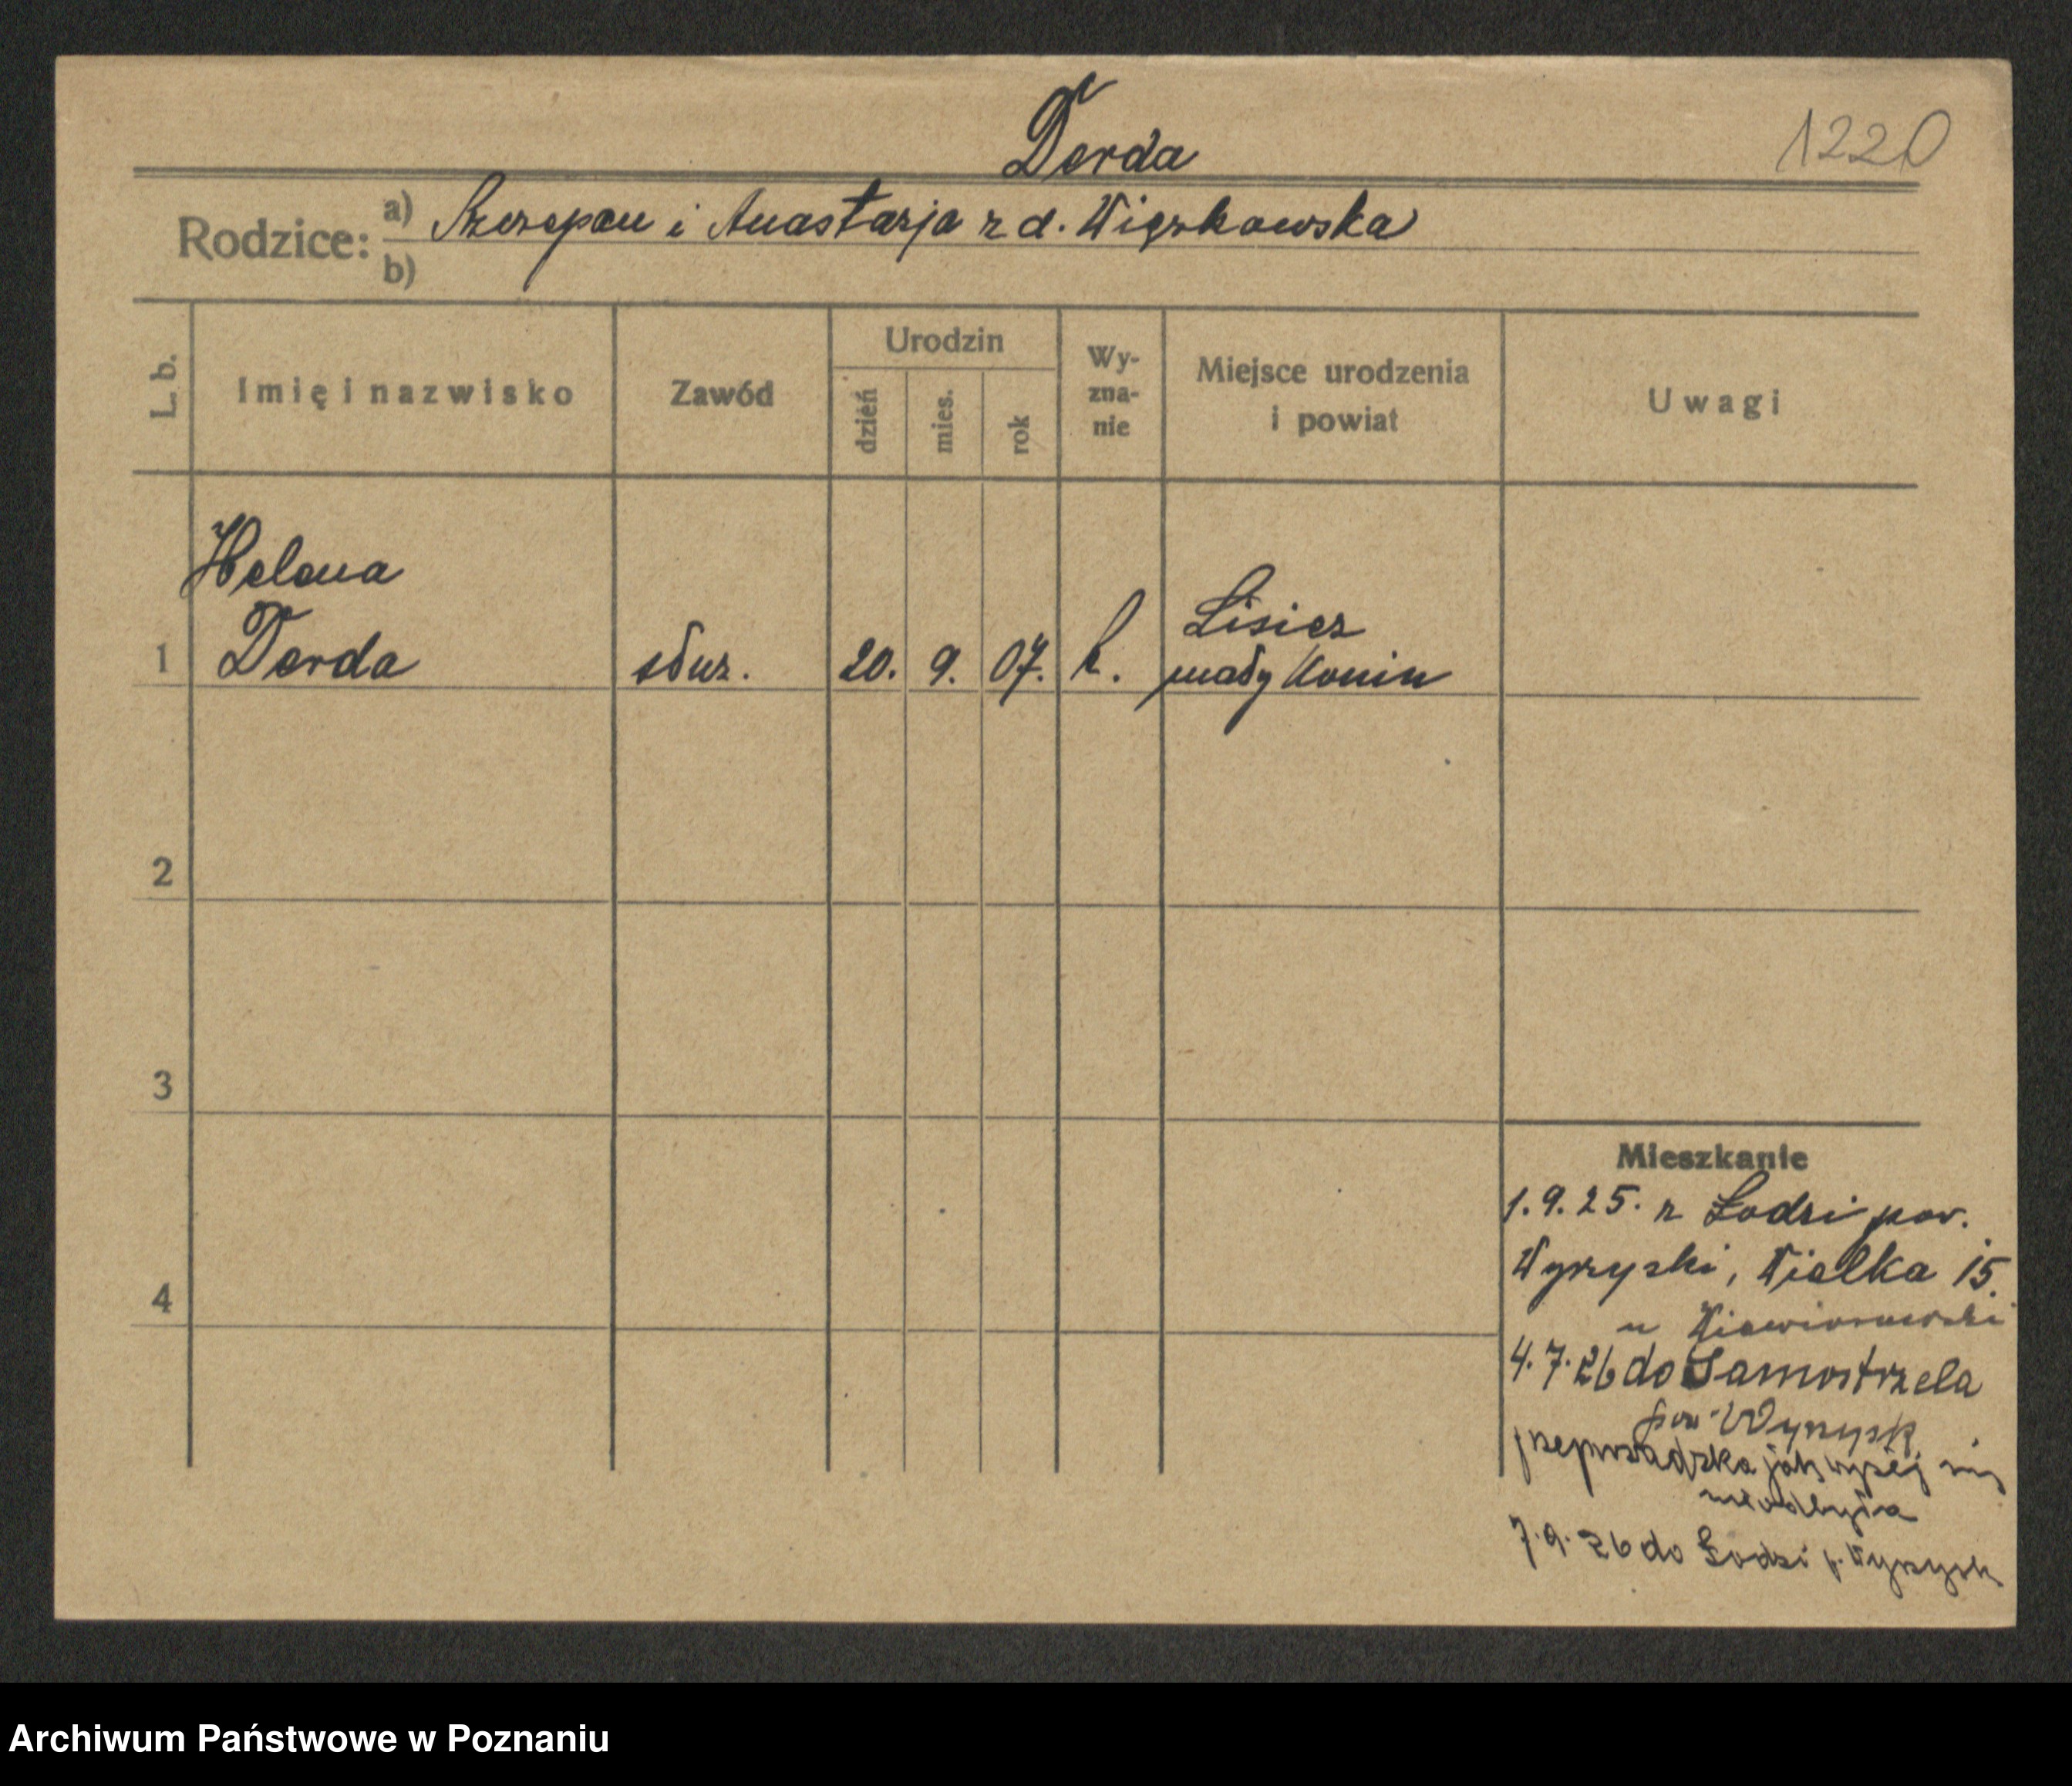 Derda
1220
Rodzice: a) Szczepan i Anastazja z d. Więzkowska
b)
L. b.
Imię i nazwisko
Zawód
Urodzin
dzień
mies.
rok
Wy-
zna-
nie
Miejsce urodzenia
i powiat
Uwagi
Helena
Derda
1
służ.
20. 9. 07.
k.
Lisiec
mały Konin
2
3
4
Mieszkanie
1.9.25. z Łodzi pow.
Wyrzyski, Wielka 15.
u
4.7.26 do Samostrzela
pow. Wyrzysk
przeprowadzka jak wyżej się
nie odbyła
7.9.26 do Łodzi p. Wyrzysk
Archiwum Państwowe w Poznaniu